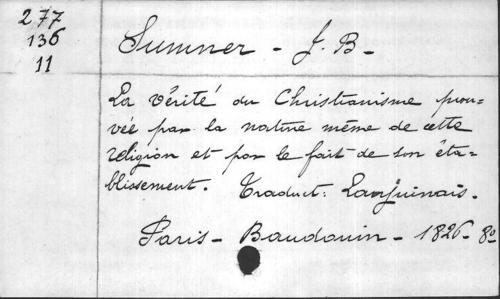 277
136
11
Sumner - J. B -
La vérité du Christianisme prou-
vée par la nature même de cette
religion et par le fait de son éta-
blissement. Traduct: Lanjuinais.
Paris - Baudouin - 1826 - 8º